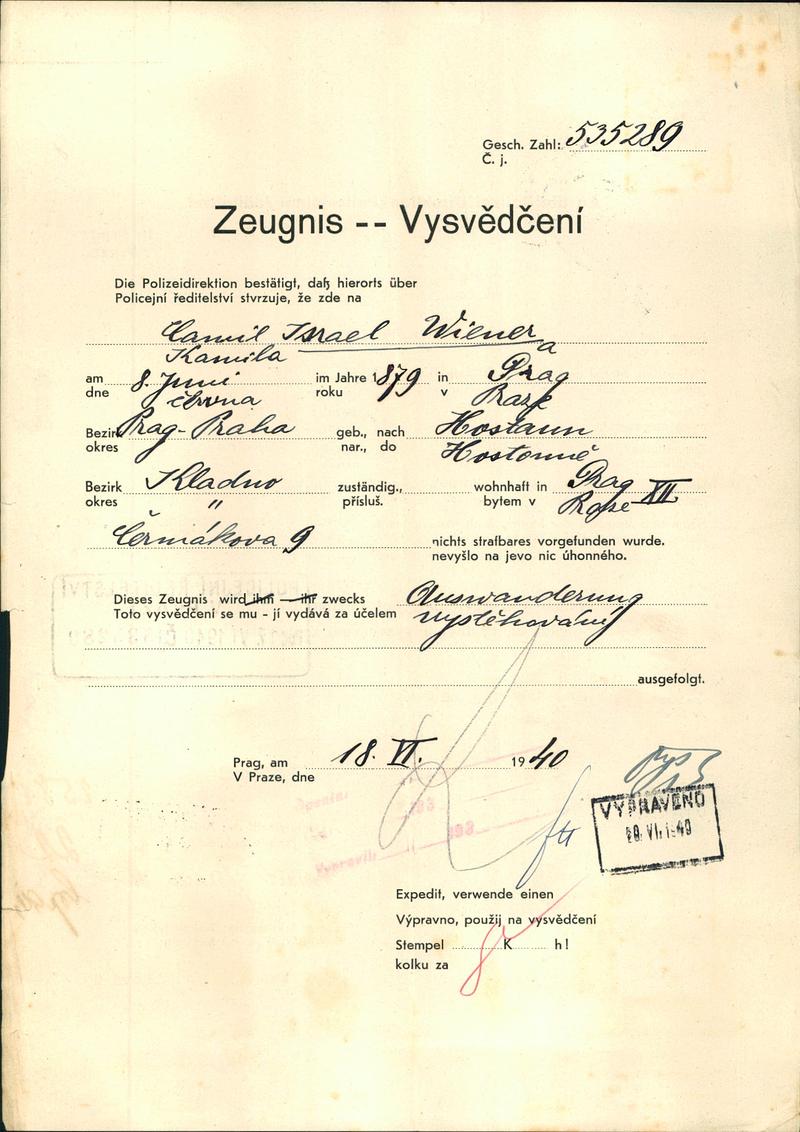 Gesch. Zahl: 535289
Č. j.
Zeugnis -- Vysvědčení
Die Polizeidirektion bestätigt, daß hierorts über
Policejní ředitelství stvrzuje, že zde na
Camil Israel Wiener
Kamila a
am 8. Juni im Jahre 1879 in Prag
dne června roku v Praze
Bezirk Prag-Praha geb., nach Hostaun
okres nar., do Hostouně
Bezirk Kladno zuständig., wohnhaft in Prag XII
okres " přísluš. bytem v Praze
Čermákova 9 nichts strafbares vorgefunden wurde.
nevyšlo na jevo nic úhonného.
Dieses Zeugnis wird ihm — ihr zwecks Auswanderung
Toto vysvědčení se mu - jí vydává za účelem vystěhování
ausgefolgt.
Prag, am 18. VI. 1940
V Praze, dne
VYPRAVENO
Expedit, verwende einen
Výpravno, použij na vysvědčení
Stempel 8 K h!
kolku za